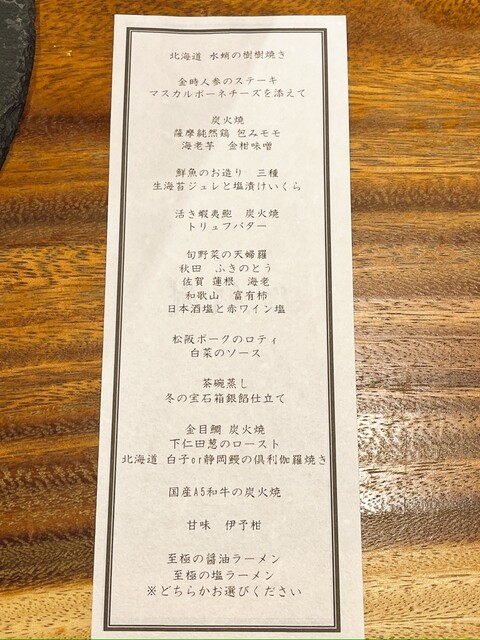 北海道 水蛸の樹樹焼き
金時人参のステーキ
マスカルポーネチーズを添えて
炭火焼
薩摩純然鶏 包みモモ
海老芋 金柑味噌
鮮魚のお造り 三種
生海苔ジュレと塩漬けいくら
活き蝦夷鮑 炭火焼
トリュフバター
旬野菜の天婦羅
秋田 ふきのとう
佐賀 蓮根 海老
和歌山 富有柿
日本酒塩と赤ワイン塩
松阪ポークのロティ
白菜のソース
茶碗蒸し
冬の宝石箱銀餡仕立て
金目鯛 炭火焼
下仁田葱のロースト
北海道 白子or静岡鰻の倶利伽羅焼き
国産A5和牛の炭火焼
甘味 伊予柑
至極の醤油ラーメン
至極の塩ラーメン
※どちらかお選びください